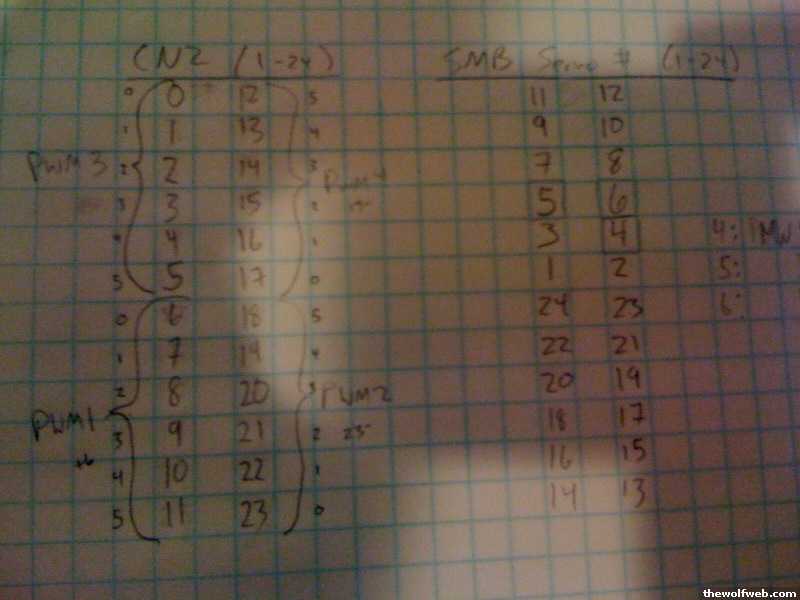 CN2 (1-24) SMB Servo # (1-24)
0 0 12 5 11 12
1 1 13 4 9 10
PWM3 2 2 14 3 7 8
3 3 15 2 5 6
4 4 16 1 3 4 4:
5 5 17 0 1 2 5:
0 6 18 5 24 23 6:
1 7 19 4 22 21
2 8 20 3 PWM2 20 19
PWM1 3 9 21 2 23- 18 17
4 10 22 1 16 15
5 11 23 0 14 13
thewolfweb.com